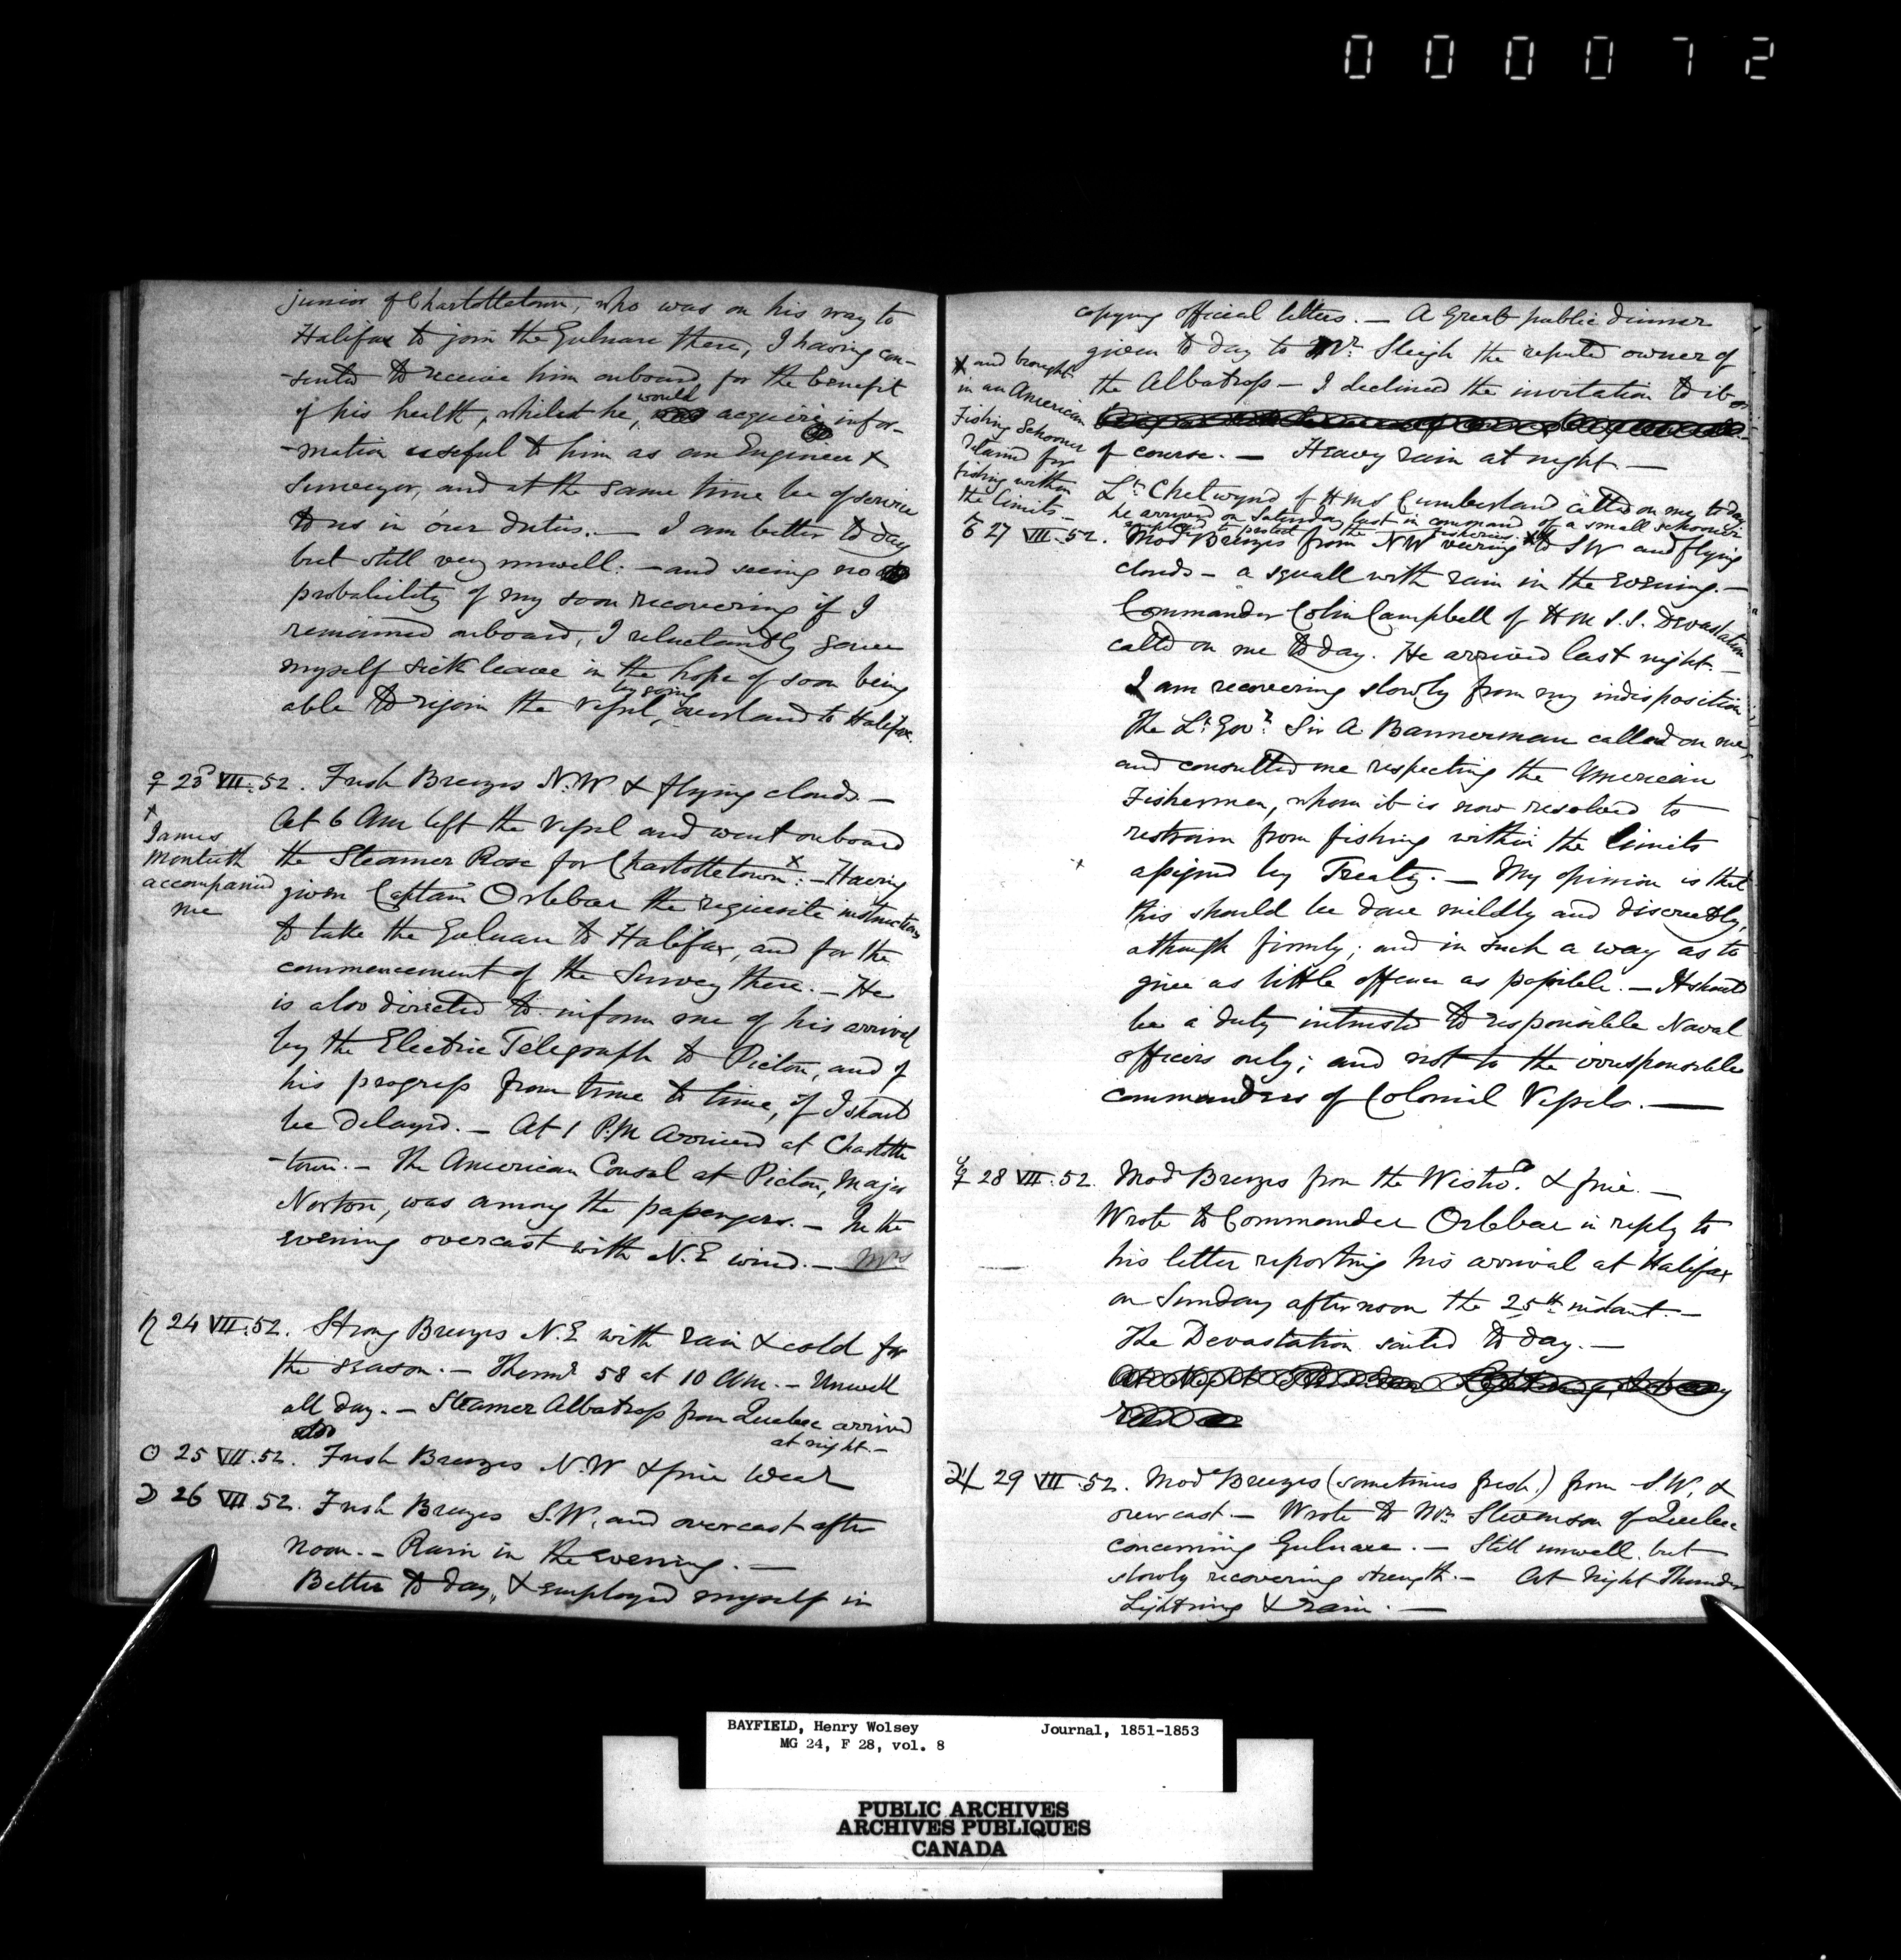 000072
junior of Charlottetown, who was on his way to
Halifax to join the Gulnare there, I having con-
-sented to receive him onboard for the benefit
of his health, whilst he, would acquire infor-
-mation useful to him as an Engineer &
Surveyor, and at the same time be of service
to us in our duties. — I am better to day
but still very unwell: — and seeing no
probability of my soon recovering if I
remained onboard, I reluctantly gave
myself sick leave in the hope of soon being
able to rejoin the Vessel, by going overland to Halifax.
♀ 23 VII. 52. Fresh Breezes N.W & flying clouds —
At 6 Am left the Vessel and went onboard
the Steamer Rose for Charlottetown x: — Having
given Captain Orlebar the requisite instructions
to take the Gulnare to Halifax, and for the
commencement of the Survey there. — He
is also directed to inform me of his arrival
by the Electric Telegraph to Pictou, and of
his progress from time to time, if I should
be delayed. — At 1 P.M arrived at Charlotte
-town. — The American Consul at Pictou, Major
Norton, was among the passengers. — In the
evening overcast with N.E wind. — Mrs
x
James
Monteith
accompanied
me
♄ 24 VII. 52. Strong Breezes N.E with rain & cold for
the season. — Thermr 58 at 10 Am. — Unwell
all day. — Steamer Albatross from Quebec arrived
at night. —
☉ 25 VII. 52. Fresh Breezes N.W & fine Wear
☽ 26 VII. 52. Fresh Breezes S.W, and overcast after
noon. — Rain in the evening. —
Better to day, & employed myself in
copying official letters. — A Great public dinner
given to day to Mr. Sleigh the reputed owner of
the Albatross — I declined the invitation to it
of course. — Heavy rain at night. —
Lt. Chetwynd of HMS Cumberland called on me to day
he arrived on Saturday last in command of a small schooner
employed to protect the fisheries x
x and brought
in an American
Fishing Schooner
detained for
fishing within
the limits —
♂ 27 VII. 52. Modr Breezes from NW veering to SW and flying
clouds — a squall with rain in the evening. —
Commander Colin Campbell of H M S.S. Devastation
called on me to day. He arrived last night. —
I am recovering slowly from my indisposition
The Lt. Govr. Sir A Bannerman called on me,
and consulted me respecting the American
Fishermen, whom it is now resolved to
restrain from fishing within the limits
x assigned by Treaty. — My opinion is that
this should be done mildly and discreetly,
although firmly; and in such a way as to
give as little offence as possible. — It should
be a duty intrusted to responsible Naval
officers only; and not to the irresponsible
commanders of Colonial Vessels. —
☿ 28 VII. 52. Modr Breezes from the Westwd. & fine. —
Wrote to Commander Orlebar in reply to
his letter reporting his arrival at Halifax
on Sunday afternoon the 25th instant. —
The Devastation sailed to day. —
At Night Thunder Lightning & heavy
rain
♃ 29 VII. 52. Modr Breezes (sometimes fresh.) from S.W. &
overcast — Wrote to Mr. Stevenson of Quebec
concerning Gulnare. — Still unwell but
slowly recovering strength. — At Night Thunder
Lightning & rain. —
BAYFIELD, Henry Wolsey Journal, 1851-1853
MG 24, F 28, vol. 8
PUBLIC ARCHIVES
ARCHIVES PUBLIQUES
CANADA